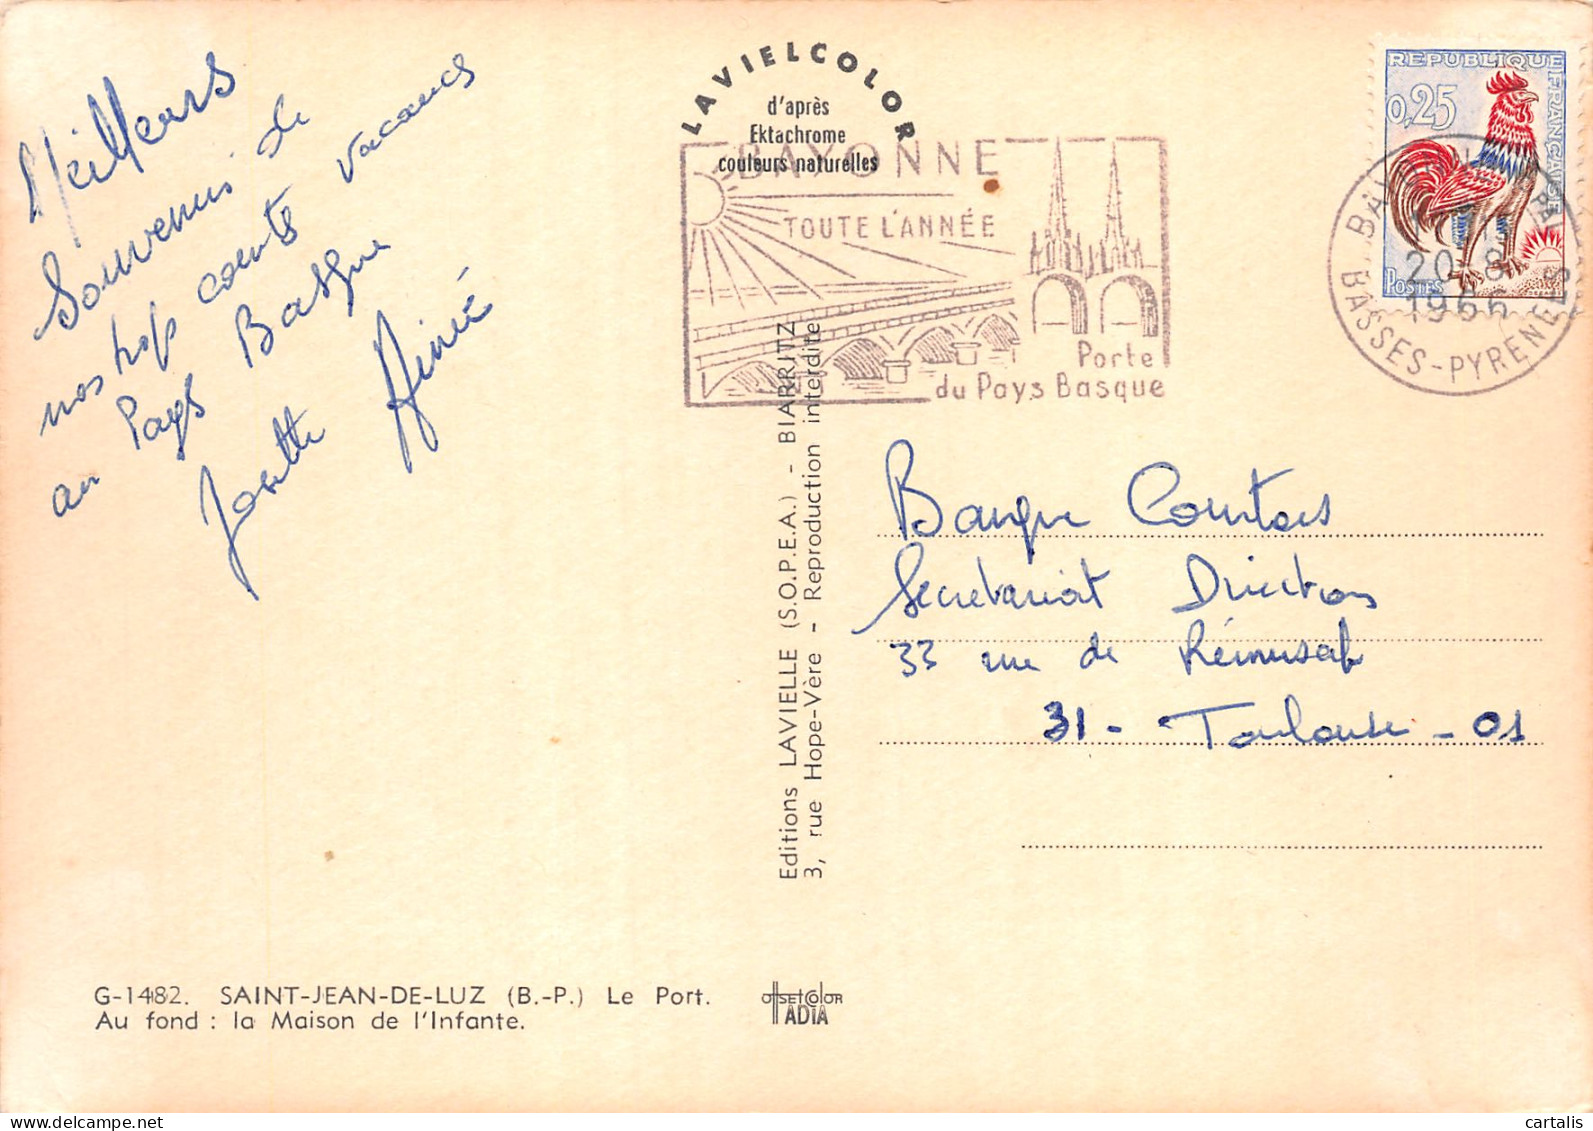 Meilleurs
Souvenirs de
nos trop courtes vacances
au Pays Basque
Josette Aimé
LAVIELCOLOR
d'après
Ektachrome
couleurs naturelles
BAYONNE
TOUTE L'ANNÉE
Porte
du Pays Basque
REPUBLIQUE FRANÇAISE
0,25
POSTES
20-8
1966
BASSES-PYRENEES
Banque Courtois
Secretariat Direction
33 rue de Rémusat
31 - Toulouse - 01
Editions LAVIELLE (S.O.P.E.A.) - BIARRITZ
3, rue Hope-Vère - Reproduction interdite
G-1482. SAINT-JEAN-DE-LUZ (B.-P.) Le Port.
Au fond : la Maison de l'Infante.
OFFSETCOLOR
IADIA
cartalis - delcampe.net